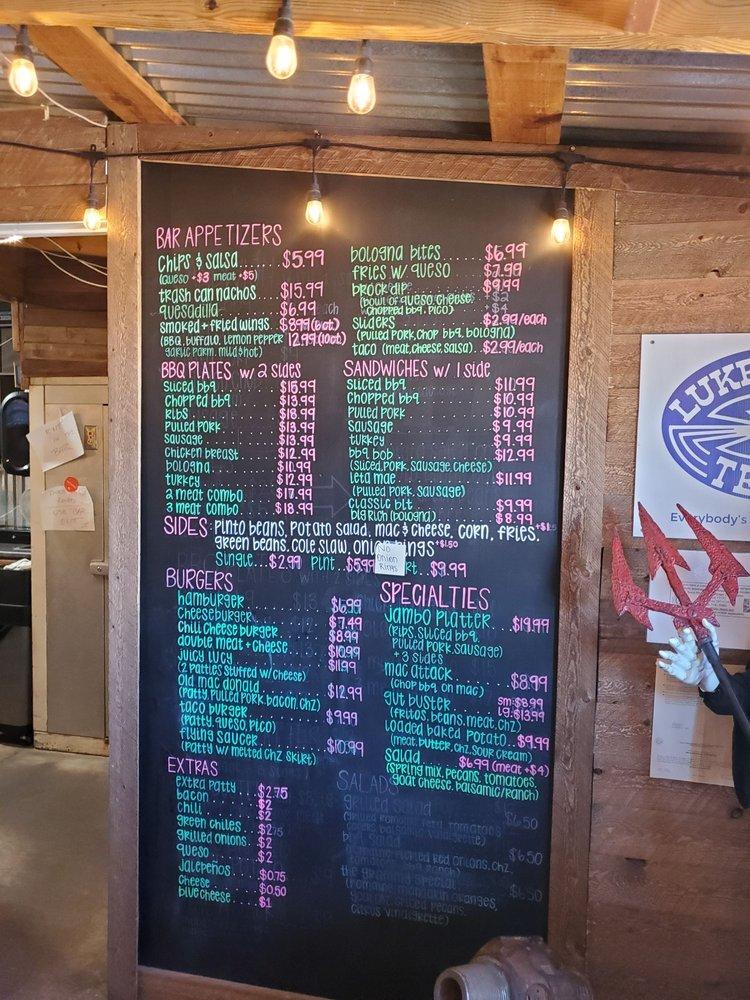 BAR APPETIZERS
chips & salsa........$5.99
(queso +$3 meat +$5)
trash can nachos....$15.99
quesadilla..........$6.99
smoked + fried wings..$8.99 (6ct)
(BBQ, buffalo, lemon pepper 12.99 (10ct)
garlic parm, mild & hot)
bologna bites......$6.99
fries w/ queso.....$7.99
brock dip.........$9.99
(bowl of queso, cheese,
chopped bbq, pico)
sliders............$2.99/each
(pulled pork, chop bbq, bologna)
taco (meat, cheese, salsa)..$2.99/each
BBQ PLATES w/ 2 sides
sliced bbq
chopped bbq........$13.99
ribs...............$18.99
pulled pork........$13.99
sausage............$13.99
chicken breast.....$12.99
bologna............$11.99
turkey.............$12.99
2 meat combo.......$17.99
3 meat combo.......$18.99
SANDWICHES w/ 1 side
sliced bbq.........$11.99
chopped bbq........$10.99
pulled pork........$10.99
sausage............$9.99
turkey.............$9.99
bbq bob............$12.99
(sliced, pork, sausage, cheese)
leta mae...........$11.99
(pulled pork, sausage)
classic blt........$9.99
big rich (bologna)..$8.99
SIDES: pinto beans, potato salad, mac & cheese, corn, fries, +$1
green beans, cole slaw, onion rings +$1.50
No
Onion
Rings
Single..$2.99 Pint..$5.99 rt..$9.99
BURGERS
hamburger..........$6.99
cheeseburger.......$7.49
chili cheese burger..$8.99
double meat + cheese..$10.99
juicy lucy.........$11.99
(2 patties stuffed w/ cheese)
old mac donald.....$12.99
(patty, pulled pork, bacon, chz)
taco burger........$9.99
(patty, queso, pico)
flying saucer......$10.99
(patty w/ melted chz skirt)
SPECIALTIES
jambo platter......$19.99
(ribs, sliced bbq,
pulled pork, sausage)
+ 3 sides
mac attack.........$8.99
(chop bbq on mac)
gut buster sm:$8.99
(fritos, beans, meat, chz) lg:$13.99
loaded baked potato...$9.99
(meat, butter, chz, sour cream)
salad $6.99 (meat +$4)
(spring mix, pecans, tomatoes,
goat cheese, balsamic/ranch)
EXTRAS
extra patty....$2.75
bacon..........$2
chili..........$2
green chiles...$2
grilled onions..$2
queso..........$2
jalepeños......$0.75
cheese.........$0.50
blue cheese....$1
SALADS
$6.50
$6.50
$6.50
LUKE
TE
Everybody's